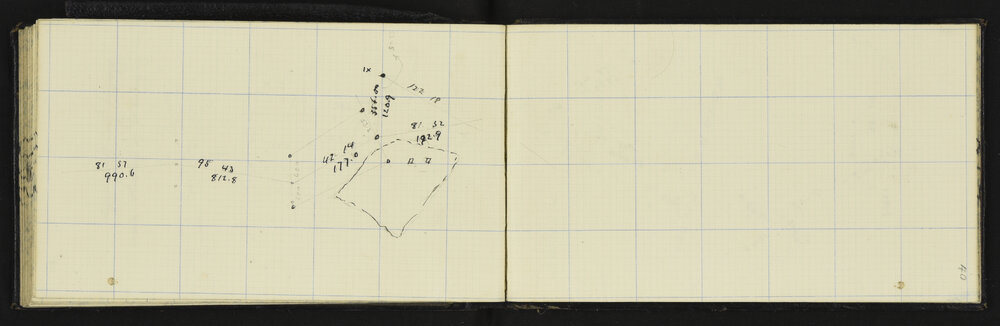 1x
122 18
356.00
120.9
81 52
192.9
42 14
177.0
81 57
990.6
95 43
812.8
40